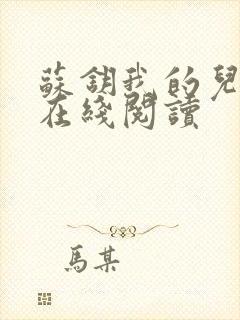 蘇錦我的兒
在綫閱讀
馬某